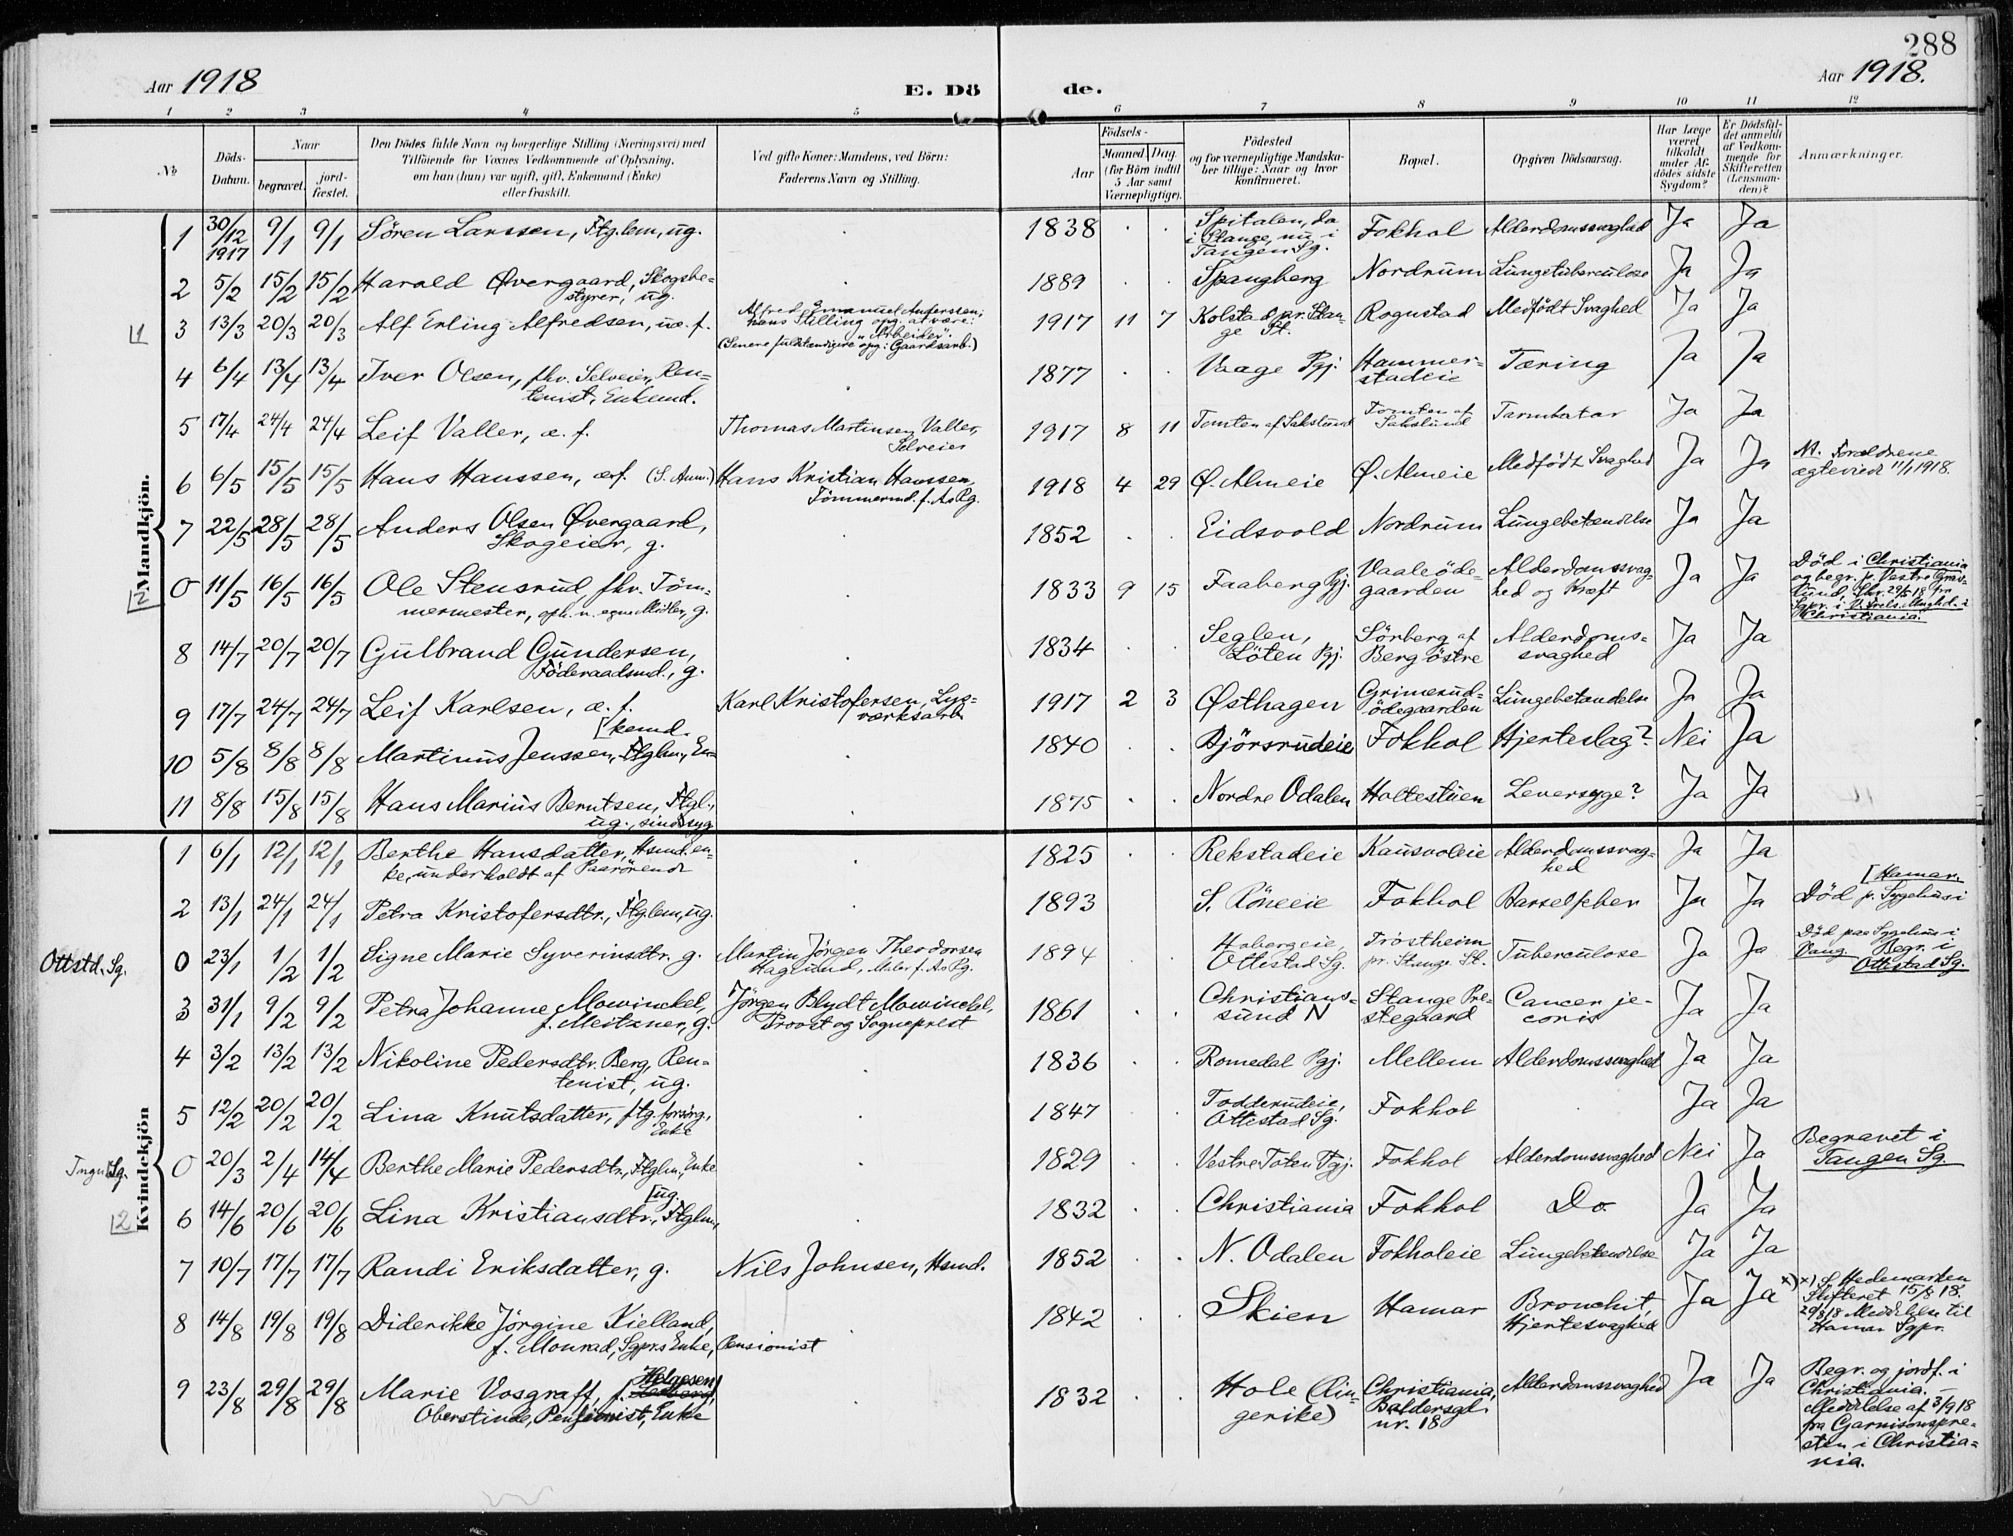 288
Aar 1918
E. Dö de.
Aar 1918.
1 2 3 4 5 6 7 8 9 10 11 12
No
Döds-Datum.
Naar
begravet.
jord-fæstet.
Den Dödes fulde Navn og borgerlige Stilling (Næringsvei) med
Tilföiende for Voxnes Vedkommende af Oplysning,
om han (hun) var ugift, gift, Enkemand (Enke)
eller fraskilt.
Ved gifte Koner: Mandens, ved Börn:
Faderens Navn og Stilling.
Födsels-
Aar
Maaned Dag
(for Börn indtil
5 Aar samt
Værnepligtige).
Födested
og for værnepligtige Mandska-
ber tillige: Naar og hvor
konfirmeret.
Bopæl.
Opgiven Dödsaarsag.
Har Læge
været
tilkaldt
under Af-
dödes sidste
Sygdom?
Er Dödsfal-
det anmeldt
af Vedkom-
mende for
Skifteretten
(Lensman-
den)?
Anmærkninger.
Mandkjön.
1 30/12 1917 9/1 9/1 Sören Larssen, Ftg.lem, ug. 1838 Spitalen, da i Stange, nu i Tangen Sg. Fokhol Alderdomssvaghed Ja Ja
2 5/2 15/2 15/2 Harald Øvergaard, Skogbe-
styrer, ug. 1889 Spangberg Nordrum Lungetuberculose Ja Ja
3 13/3 20/3 20/3 Alf Erling Alfredsen, u. f. Alfred Emanuel Anderssen;
hans Stilling opg. at være:
"Arbeider".
(Senere fuldstændigere opg: Gaardsarb.) 1917 11 7 Kolstad pr. Stan-
ge St. Rognstad Medfödt Svaghed Ja Ja
4 6/4 13/4 13/4 Iver Olsen, fhv. Selveier, Ren-
tenist, Enkemd. 1877 Vaage Pgj. Hammer-
stadeie Tæring Ja Ja
5 17/4 24/4 24/4 Leif Valler, æ. f. Thomas Martinsen Valler,
Selveier 1917 8 11 Tomten af Sakslund Tomten af
Sakslund Tarmkatar Ja Ja
6 6/5 15/5 15/5 Hans Hanssen, æ.f. (S. Anm.) Hans Kristian Hanssen,
Tömmermd. f. As Pg. 1918 4 29 Ø. Almeie Ø. Almeie Medfödt Svaghed Ja Ja Forældrene
ægteviet 11/1 1918.
7 22/5 28/5 28/5 Anders Olsen Øvergaard,
Skogeier, g. 1852 Eidsvold Nordrum Lungebetændelse Ja Ja
0 11/5 16/5 16/5 Ole Stensrud, fhv. Töm-
mermester, oph. v. egne Midler, g. 1833 9 15 Faaberg Pgj. Vaaleöde-
gaarden Alderdomssvag-
hed og Kræft Ja Ja Död i Christiania
og begr. p. Vestre Grav-
lund, Skr. 29/5 18 fra
Sgpr. i
Christiania.
8 14/7 20/7 20/7 Gulbrand Gundersen,
Föderaadsmd., g. 1834 Seglen,
Löten Pgj. Sörberg af
Berg östre Alderdoms-
svaghed Ja Ja
9 17/7 24/7 24/7 Leif Karlsen, æ. f. Karl Kristofersen, Lys-
værksarb. 1917 2 3 Østhagen Grimerud-
ödegaarden Lungebetændelse Ja Ja
10 5/8 8/8 8/8 Martinus Jenssen, Ftglm., En-
[kemd. 1840 Björsrudeie Fokhol Hjerteslag? Nei Ja
11 8/8 15/8 15/8 Hans Marius Berntsen, Ftgl.,
ug., sindssyg 1875 Nordre Odalen Holtestuen Leversyge? Ja Ja
Kvindekjön
1 6/1 12/1 12/1 Berthe Hansdatter, Hsmd.en-
ke, underholdt af Paarörende 1825 Rekstadeie Kausvoleie Alderdomssvag-
hed Ja Ja
2 13/1 24/1 24/1 Petra Kristofersdtr., Ftg.lem, ug. 1893 S. Röneeie Fokhol Barselfeber Ja Ja Död p. Sygehus i
[Hamar.
Ottstd. Sg. 0 23/1 1/2 1/2 Signe Marie Syverinsdtr. g. Martin Jörgen Theodorsen
Haglund, f. As Pg. 1894 Habergeie,
Ottestad Sg. Tröstheim
pr. Stange St. Tuberculose Ja Ja Död paa Sygehus i
Vang. Begr. i
Ottestad Sg.
3 31/1 9/2 9/2 Petra Johanne Mowinckel,
f. Meitzner, g. Jörgen Blydt Mowinckel,
Provst og Sogneprest 1861 Christians-
sund N Stange Pre-
stegaard Cancer je-
coris Ja Ja
4 3/2 13/2 13/2 Nikoline Pedersdtr. Berg, Ren-
tenist, ug. 1836 Romedal Pgj. Mellem Alderdomssvaghed Ja Ja
5 12/2 20/2 20/2 Lina Knutsdatter, ftg. forsörg.,
Enke 1847 Todderudeie,
Ottestad Sg. Fokhol Ja Ja
Tngn Sg. 0 20/3 2/4 14/4 Berthe Marie Pedersdtr., Ftglm., Enke 1829 Vestre Toten Pgj. Fokhol Alderdomssvaghed Nei Ja Begravet i
Tangen Sg.
6 14/6 20/6 20/6 Lina Kristiansdtr., Ftglm.,
[ug. 1832 Christiania Fokhol Do. Ja Ja
7 10/7 17/7 17/7 Randi Eriksdatter, g. Nils Johnsen, Hsmd. 1852 N. Odalen Fokholeie Lungebetændelse Ja Ja
8 14/8 19/8 19/8 Diderikke Jörgine Kielland,
f. Monrad, Sgprs Enke, Pensionist 1842 Skien Hamar Bronchit,
Hjertesvaghed Ja Ja x) x) S. Hedemarken
Skifteret 15/8 18.
20/8 18 Meddelelse til
Hamar Sgpr.
9 23/8 29/8 29/8 Marie Vosgraff f. Helgesen,
Oberstinde, Pensionist, Enke 1832 Hole (Rin-
gerike) Christiania,
Baldersgd.
nr. 18 Alderdomssvaghed Ja Ja Begr. og jordf. i
Christiania. –
Meddelelse af 3/9 18
fra Garnisonspre-
sten i Christia-
nia.